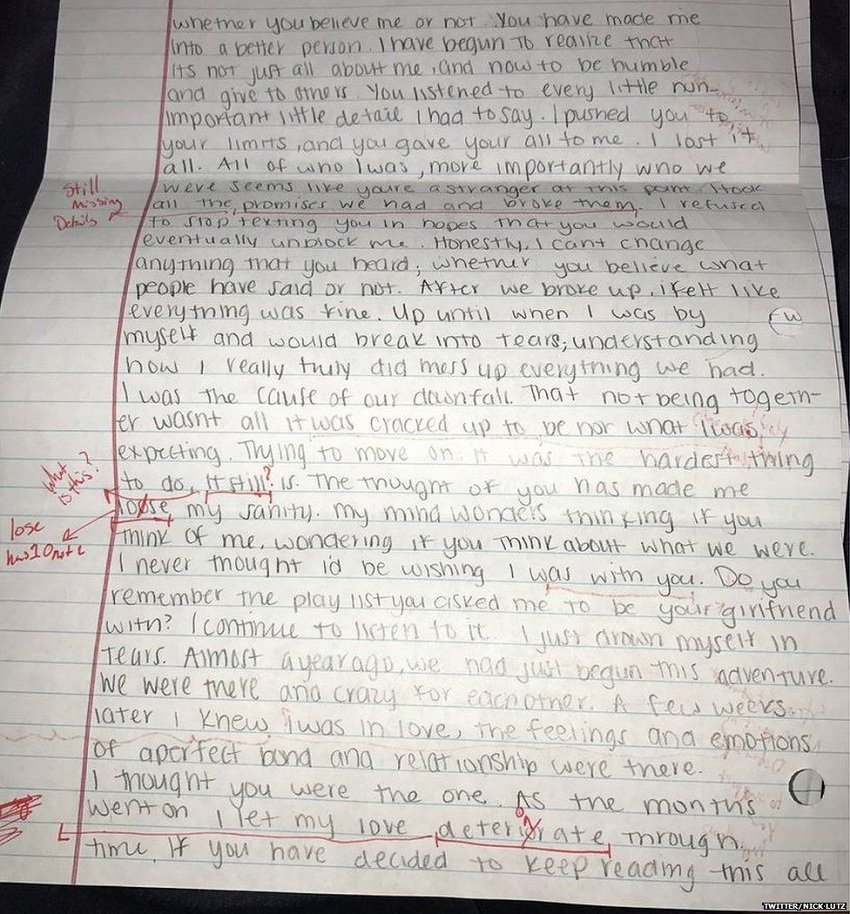 whether you believe me or not. You have made me
into a better person. I have begun to realize that
its not just all about me, and now to be humble
and give to others. You listened to every little nun-
important little detail I had to say. I pushed you to
your limits, and you gave your all to me. I lost it
all. All of who I was, more importantly who we
were seems like youre a stranger at this point. I took
Still
Missing
Details
all the promises we had and broke them. I refused
to stop texting you in hopes that you would
eventually unblock me. Honestly, I cant change
anything that you heard; whether you believe what
people have said or not. After we broke up, I felt like
everything was fine. Up until when I was by
myself and would break into tears; understanding
how I really truly did mess up everything we had.
I was the cause of our downfall. That not being togeth-
er wasnt all it was cracked up to be nor what I was
expecting. Trying to move on. It was the hardest thing
What
is this?
to do, it still? is. The thought of you has made me
loose my sanity. My mind wonders thinking if you
lose
has 1 O not 2
think of me, wondering if you think about what we were.
I never thought id be wishing I was with you. Do you
remember the play list you asked me to be your girlfriend
with? I continue to listen to it. I just drown myself in
tears. Almost a year ago, we had just begun this adventure.
We were there and crazy for each other. A few weeks
later I knew I was in love, the feelings and emotions
of a perfect bond and relationship were there.
I thought you were the one. As the months
went on I let my love deteriorate through
time. If you have decided to keep reading this all
TWITTER/NICK LUTZ